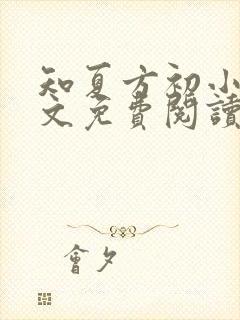 知夏方初小
文免費閱讀
會夕